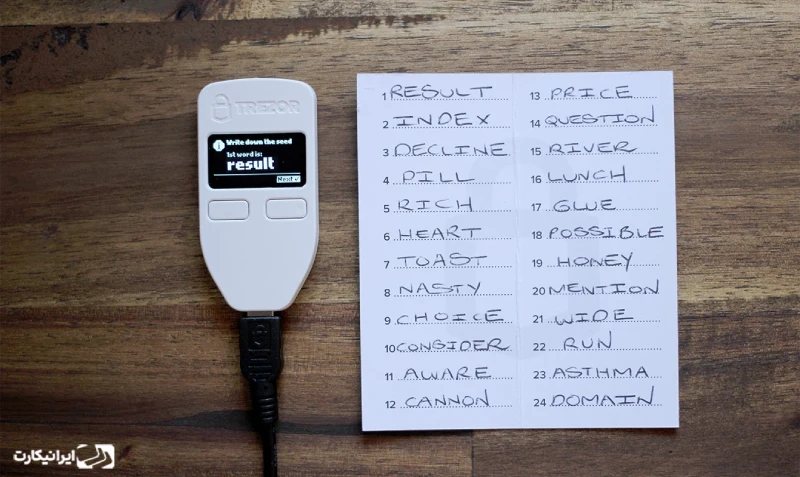 TREZOR
Write down the seed
1st word is:
result
Next
1 RESULT
2 INDEX
3 DECLINE
4 PILL
5 RICH
6 HEART
7 TOAST
8 NASTY
9 CHOICE
10 CONSIDER
11 AWARE
12 CANNON
13 PRICE
14 QUESTION
15 RIVER
16 LUNCH
17 GLUE
18 POSSIBLE
19 HONEY
20 MENTION
21 WIDE
22 RUN
23 ASTHMA
24 DOMAIN
ایرانیکارت